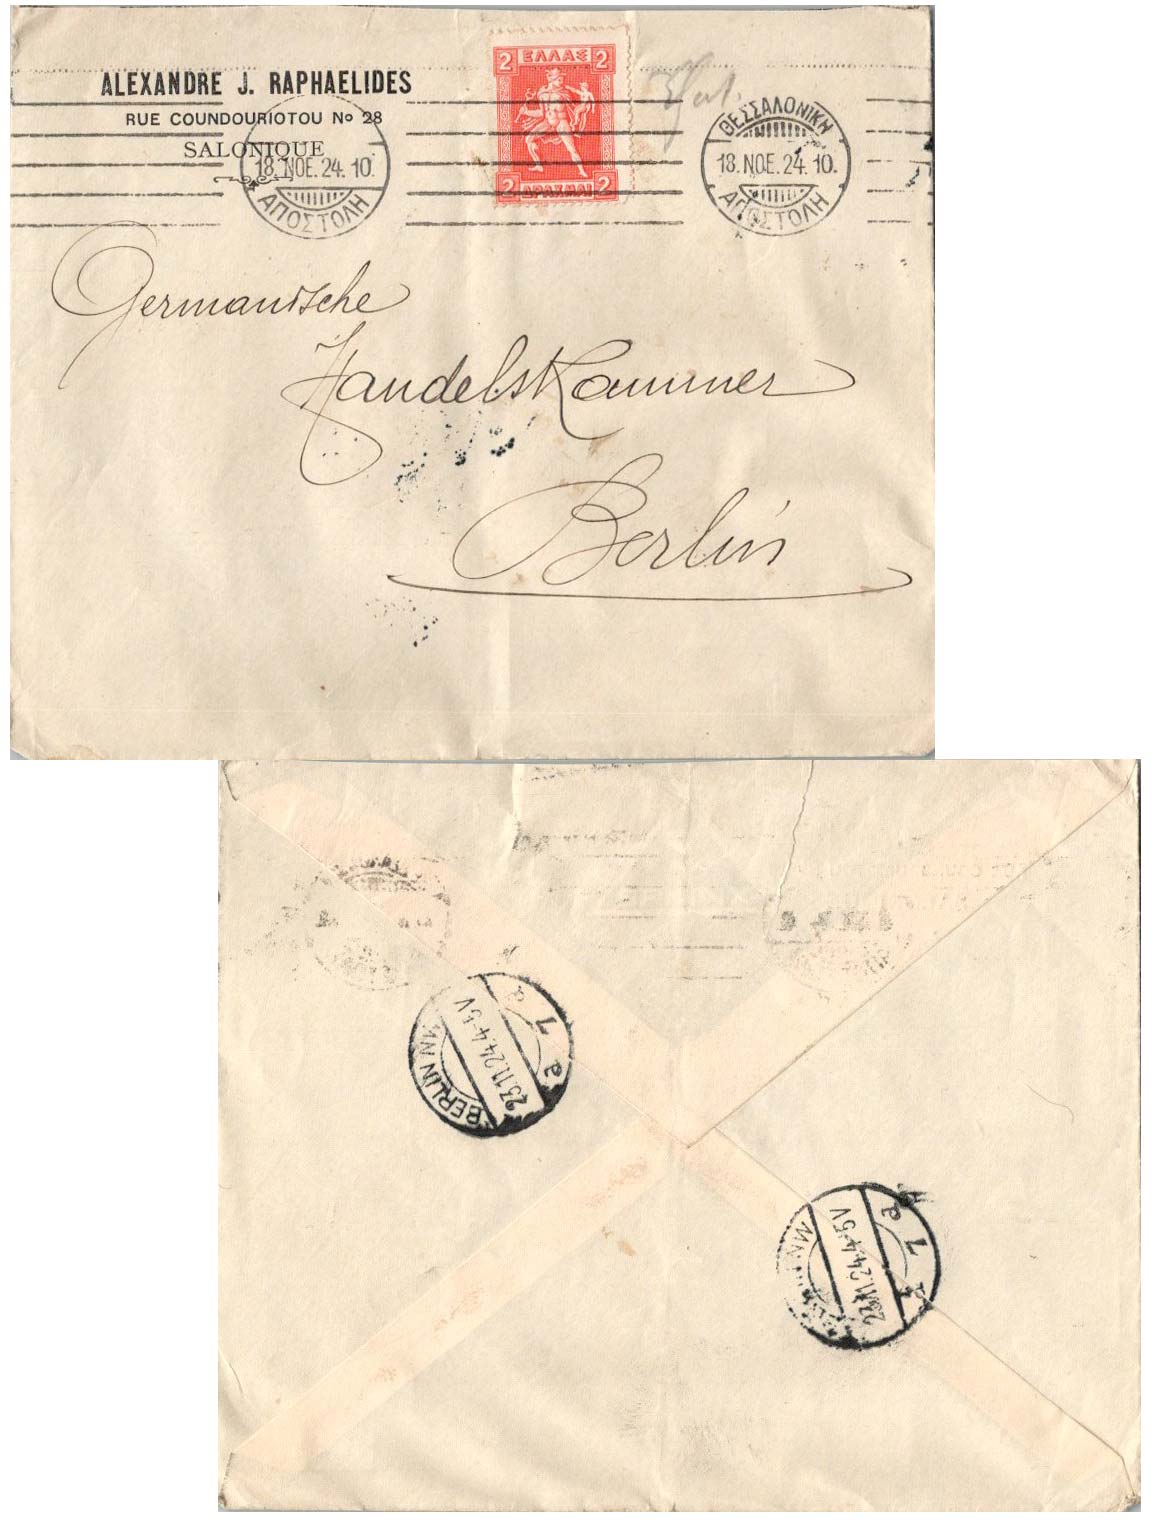 ALEXANDRE J. RAPHAELIDES
RUE COUNDOURIOTOU No 28
SALONIQUE
18. ΝΟΕ. 24. 10.
ΑΠΟΣΤΟΛΗ
2 ΕΛΛΑΣ 2
2 ΔΡΑΧΜΑΙ 2
ΘΕΣΣΑΛΟΝΙΚΗ
18. ΝΟΕ. 24. 10.
ΑΠΟΣΤΟΛΗ
Germanische
Handelskammer
Berlin
BERLIN NW
23.11.24.4-5V
a 7 a
NW
23.11.24.4-5V
a 7 a